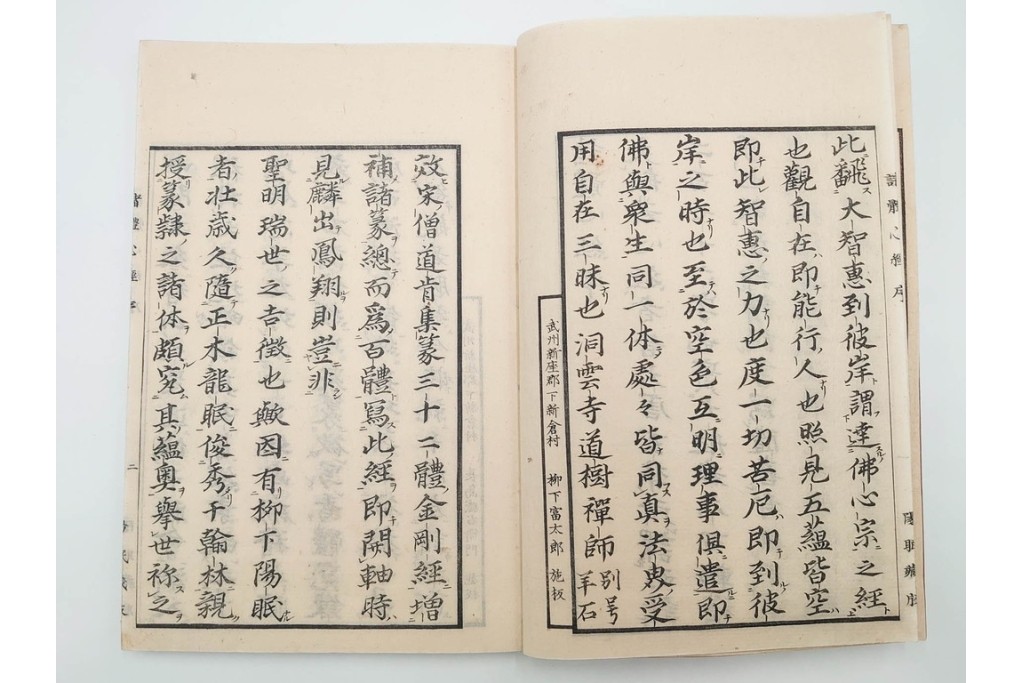 此飜大智惠到彼岸謂達佛心宗之經
也觀自在即能行人也照見五蘊皆空
即此智惠之力也度一切苦厄即到彼
岸之時也至於空色互明理事俱遣即
佛與衆生同一体處々皆同真法叓受
用自在三昧也洞雲寺道樹禪師別号羊石
武州新座郡下新倉村 柳下富太郎 施板
效宋僧道肯集篆三十二體金剛經増
補諸篆總而爲百體寫此經即開軸時
見麟出鳳翔則豈非
聖明瑞世之吉徴也歟因有柳下陽眠
者壮歳久隨正木龍眠俊秀于翰林親
授篆隷之諸体頗究其蘊奥擧世祢之
諸體心經序
二